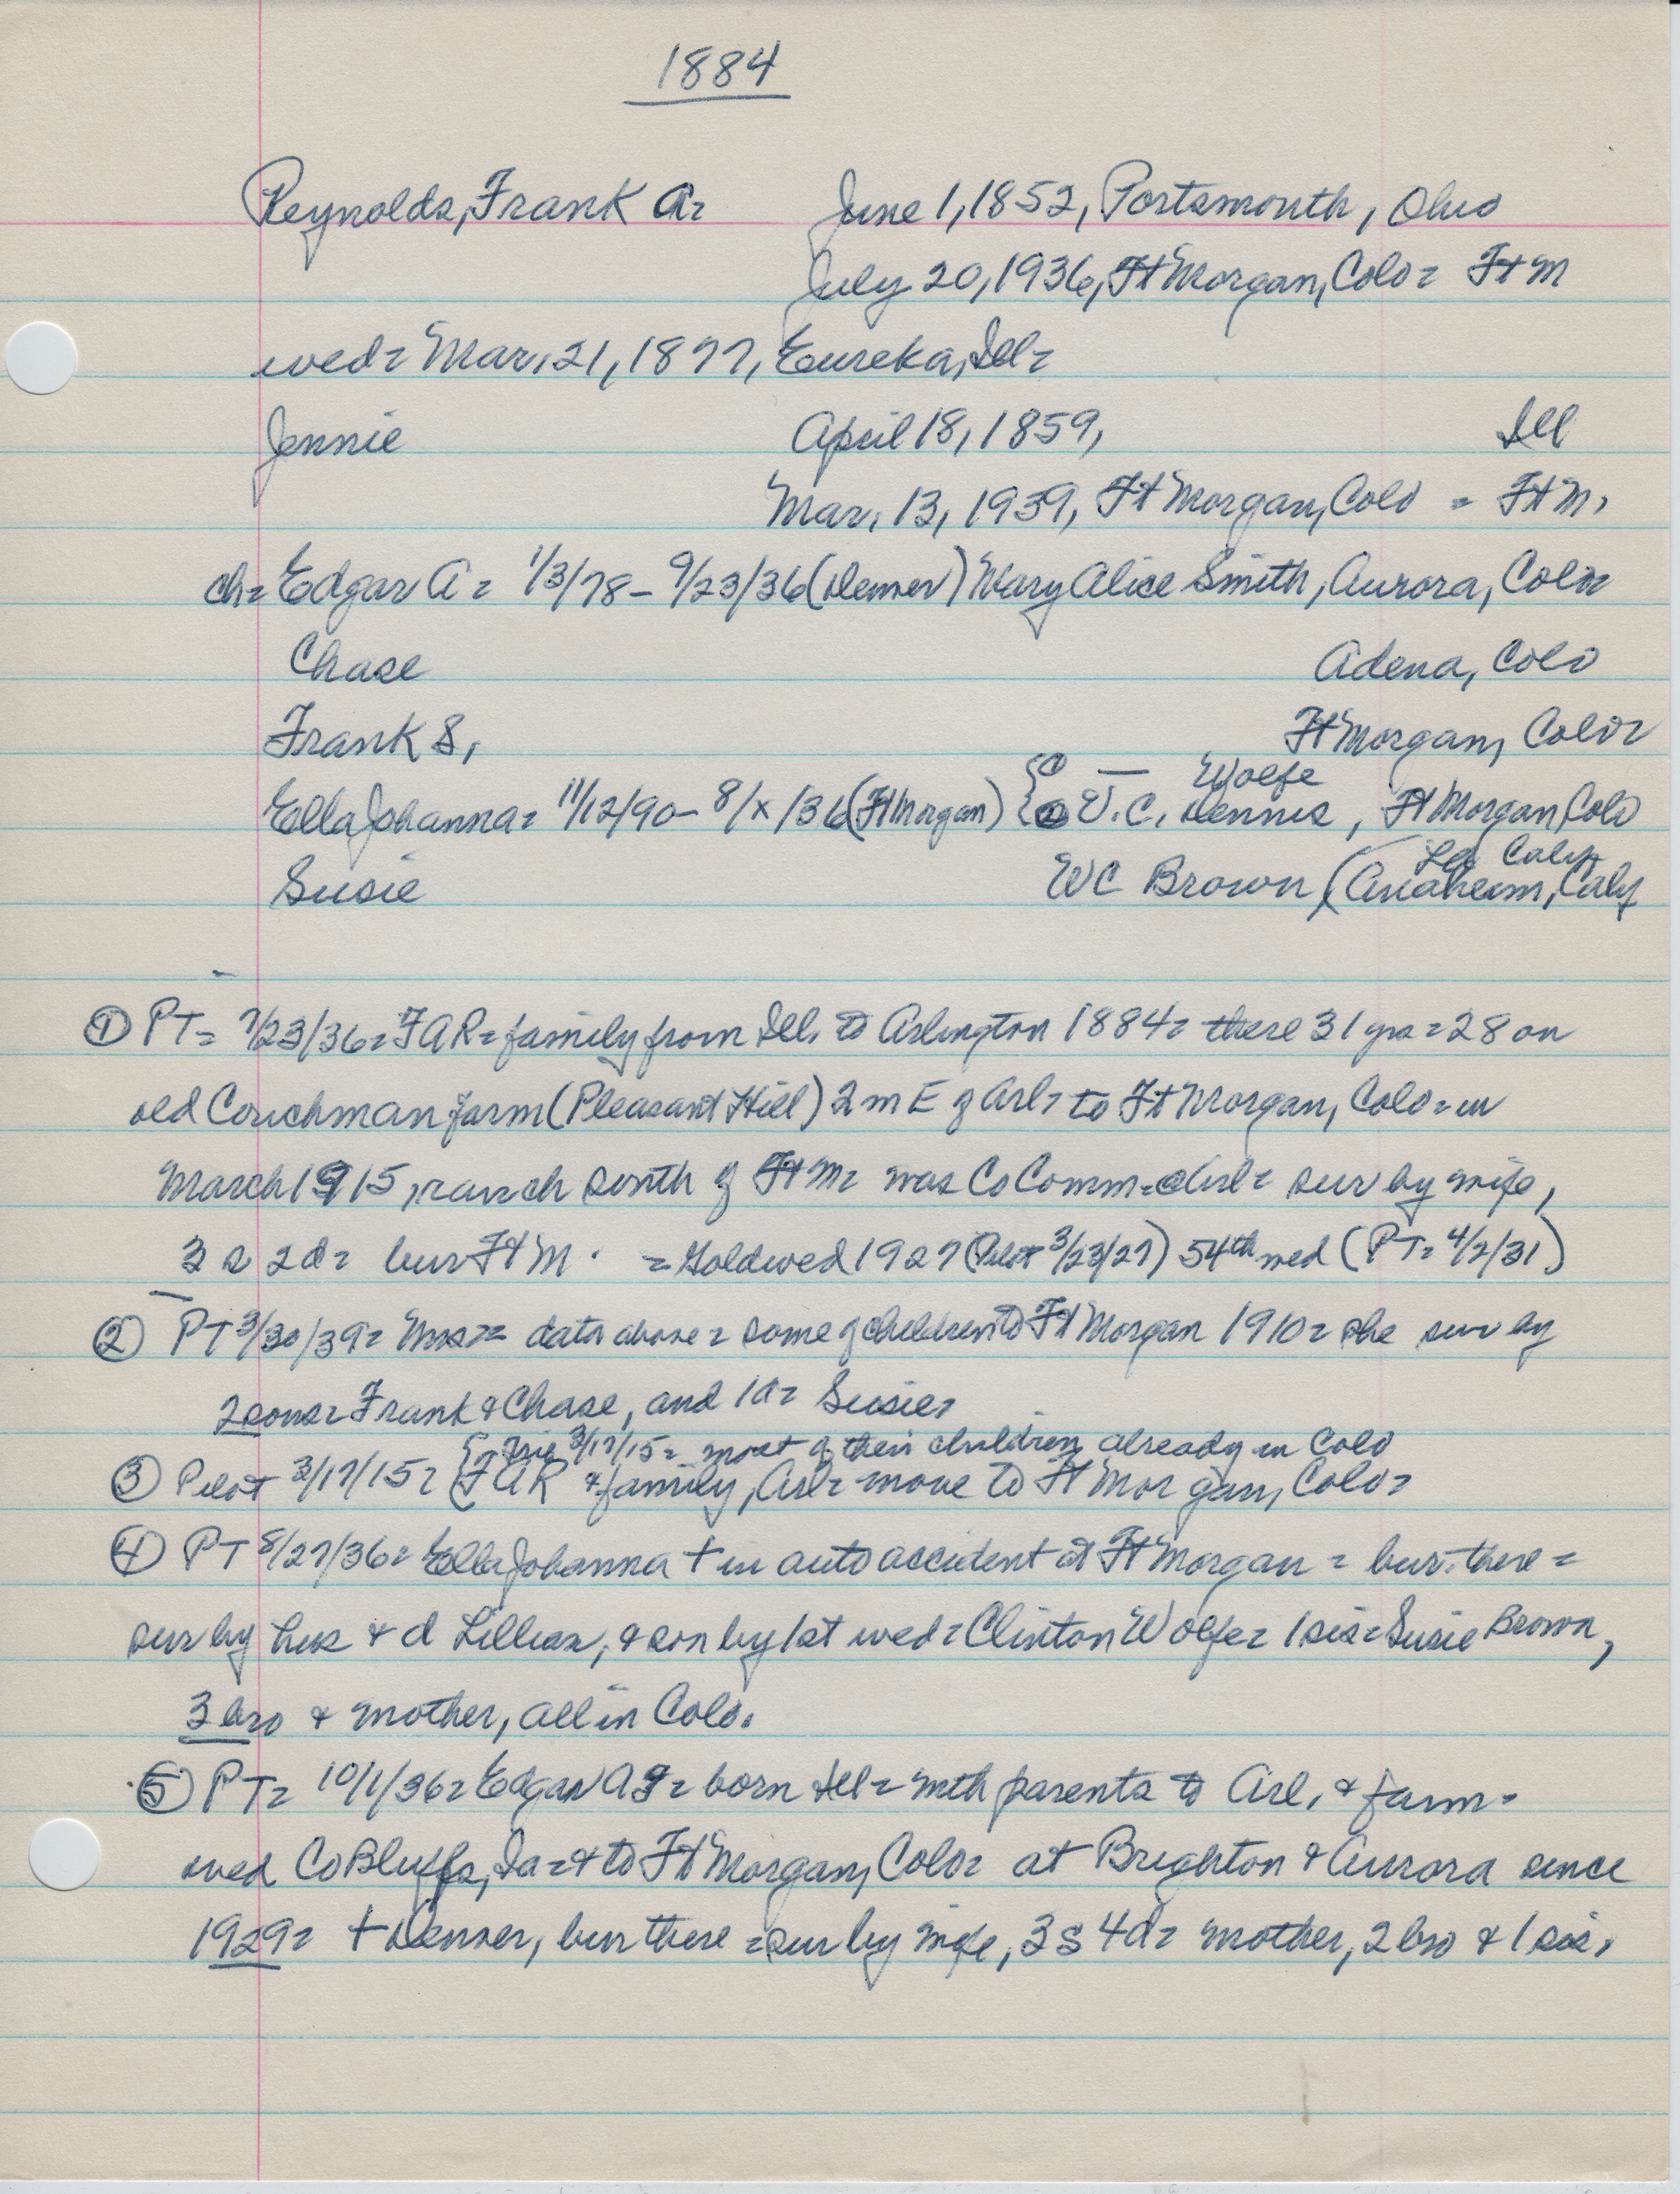 1884
Reynolds, Frank A= June 1, 1852, Portsmouth, Ohio
July 20, 1936, Ft Morgan, Colo= Ft M
wed= Mar. 21, 1877, Eureka, Ill=
Jennie April 18, 1859, Ill
Mar. 13, 1939, Ft Morgan, Colo = Ft M.
ch= Edgar A= 1/3/78 - 9/23/36 (Denver) Mary Alice Smith, Aurora, Colo=
Chase Adena, Colo
Frank S. Ft Morgan, Colo=
① — Wolfe
Ella Johanna= 11/12/90 - 8/x/36 (Ft Morgan) { ② V. C. Dennis, Ft Morgan Colo
Calif
Susie WC Brown (Anaheim, Calif
① PT= 7/23/36= FAR= family from Ill. to Arlington 1884= there 31 yrs= 28 on
old Couchman farm (Pleasant Hill) 2 m E of Arl= to Ft Morgan, Colo= in
March 1915, ranch south of Ft M= was Co Comm= @ Arl= sur by wife,
3 s 2 d= bur Ft M. = Gold wed 1927 (Pilot 3/23/27) 54th wed (PT= 4/2/31)
② PT 3/30/39= Mrs= data above= some of children to Ft Morgan 1910= she sur by
2 sons= Frank & Chase, and 1 d= Susie=
3/17/15= most of their children already in Colo
③ Pilot 3/17/15= { FAR & family, Arl= move to Ft Morgan, Colo=
④ PT 8/27/36= Ella Johanna + in auto accident at Ft Morgan = bur. there =
sur by hus & d Lillian, & son by 1st wed= Clinton Wolfe= 1 sis= Susie Brown,
3 bro & mother, all in Colo.
⑤ PT= 10/1/36= Edgar A = born Ill= with parents to Arl. & farm=
wed Co Bluffs, Ia= & to Ft Morgan, Colo= at Brighton & Aurora since
1929= + Denver, bur there = sur by wife, 3 s 4 d= mother, 2 bro & 1 sis.